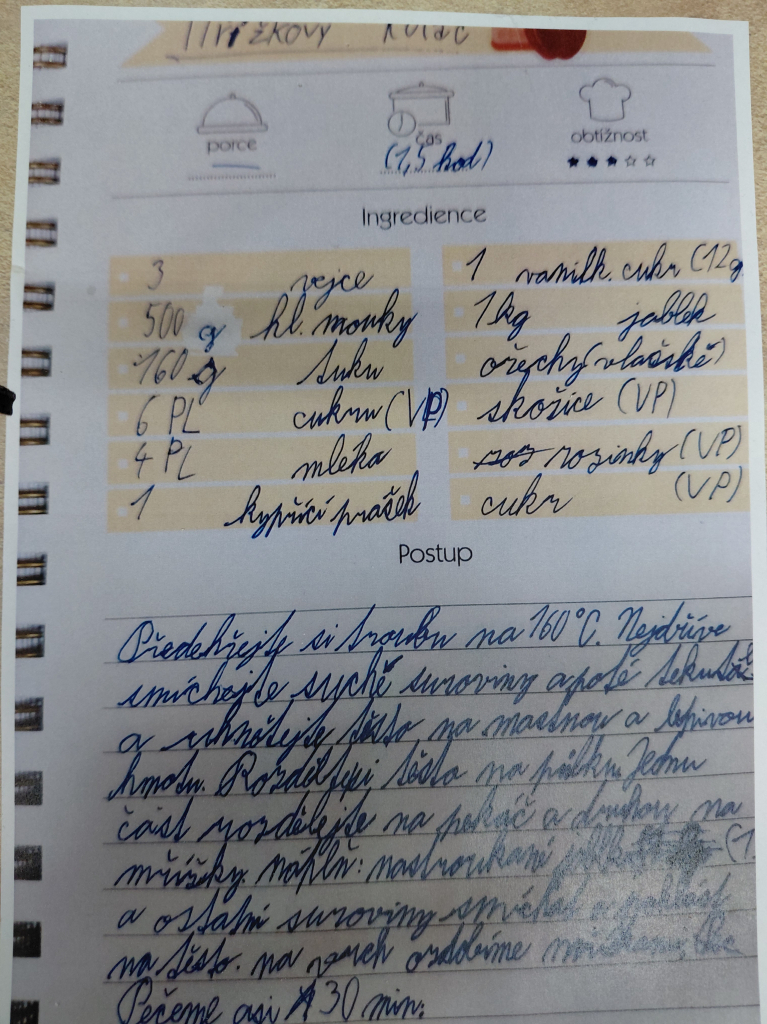 Mřížkový koláč
porce
čas
obtížnost
(1,5 hod)
Ingredience
3 vejce
500 g hl. mouky
160 g tuku
6 PL cukru (VP)
4 PL mléka
1 kypřící prášek
1 vanilk. cukr (12g
1kg jablek
ořechy (vlašské)
skořice (VP)
rozinky (VP)
cukr (VP)
Postup
Předehřejte si troubu na 160°C. Nejdříve
smíchejte suché suroviny a poté tekuté
a uhněťejte těsto na mastnou a lepivou
hmotu. Rozdělte si těsto na půlku. Jednu
část rozdělejte na pekáč a druhou na
mřížky. náplň: nastrouhané
a ostatní suroviny smíchat a
na těsto. na vrch ozdobíme mřížkami.
Pečeme asi 30 min.